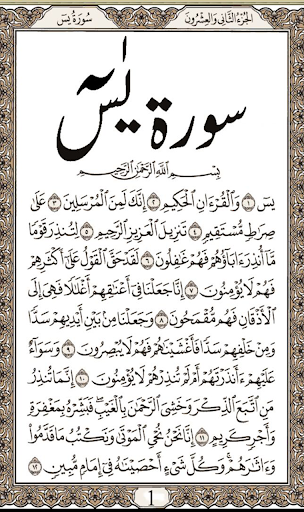 الجزء الثاني والعشرون
سورة يس
سورة يسٓ
بِسْمِ اللَّهِ الرَّحْمَٰنِ الرَّحِيمِ
يسٓ ۝١ وَالْقُرْءَانِ الْحَكِيمِ ۝٢ إِنَّكَ لَمِنَ الْمُرْسَلِينَ ۝٣ عَلَىٰ
صِرَاطٍ مُّسْتَقِيمٍ ۝٤ تَنزِيلَ الْعَزِيزِ الرَّحِيمِ ۝٥ لِتُنذِرَ قَوْمًا
مَّا أُنذِرَ ءَابَاؤُهُمْ فَهُمْ غَٰفِلُونَ ۝٦ لَقَدْ حَقَّ الْقَوْلُ عَلَىٰ أَكْثَرِهِمْ
فَهُمْ لَا يُؤْمِنُونَ ۝٧ إِنَّا جَعَلْنَا فِي أَعْنَٰقِهِمْ أَغْلَٰلًا فَهِيَ إِلَى
الْأَذْقَانِ فَهُم مُّقْمَحُونَ ۝٨ وَجَعَلْنَا مِن بَيْنِ أَيْدِيهِمْ سَدًّا
وَمِنْ خَلْفِهِمْ سَدًّا فَأَغْشَيْنَٰهُمْ فَهُمْ لَا يُبْصِرُونَ ۝٩ وَسَوَاءٌ
عَلَيْهِمْ ءَأَنذَرْتَهُمْ أَمْ لَمْ تُنذِرْهُمْ لَا يُؤْمِنُونَ ۝١٠ إِنَّمَا تُنذِرُ
مَنِ اتَّبَعَ الذِّكْرَ وَخَشِيَ الرَّحْمَٰنَ بِالْغَيْبِ فَبَشِّرْهُ بِمَغْفِرَةٍ
وَأَجْرٍ كَرِيمٍ ۝١١ إِنَّا نَحْنُ نُحْيِ الْمَوْتَىٰ وَنَكْتُبُ مَا قَدَّمُوا
وَءَاثَٰرَهُمْ وَكُلَّ شَيْءٍ أَحْصَيْنَٰهُ فِي إِمَامٍ مُّبِينٍ ۝١٢
1